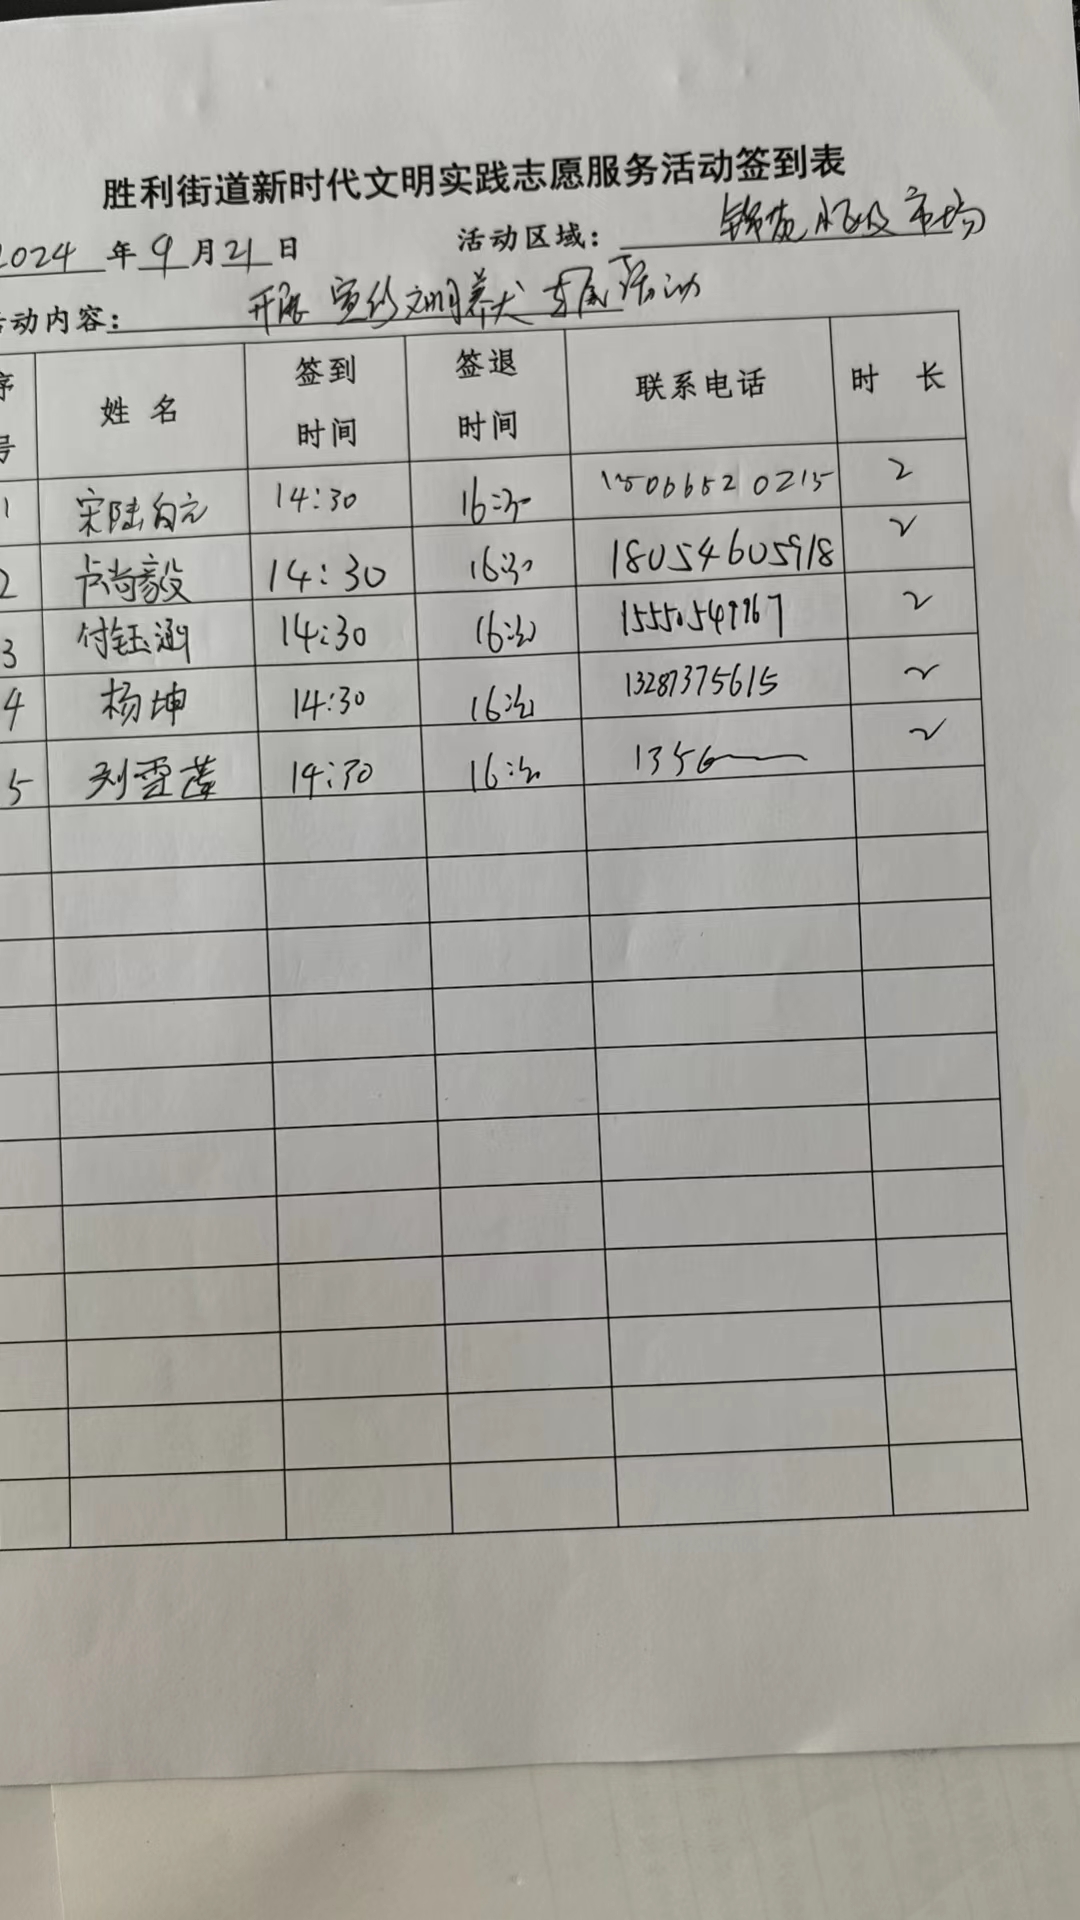 胜利街道新时代文明实践志愿服务活动签到表
2024 年 9 月 21 日 活动区域： 市场
活动内容： 开展 宣传文明养犬 专属活动
序号 姓名 签到时间 签退时间 联系电话 时长
1 宋陆 14:30 16:30 15066520215 2
2 卢尚毅 14:30 16:30 18054605918 2
3 付钰涵 14:30 16:30 2
4 杨坤 14:30 16:30 13287375615 2
5 刘雪莲 14:30 16:30 1356 2